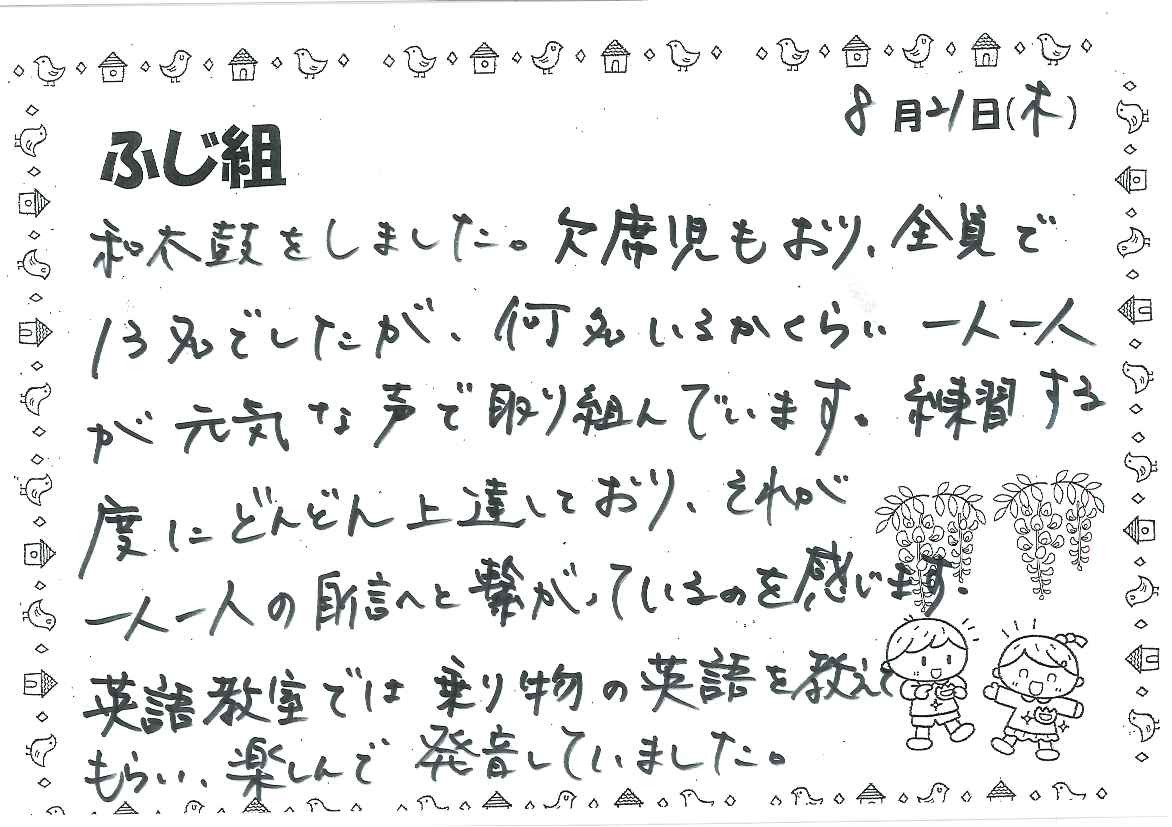 8月21日(木)
ふじ組
和太鼓をしました。欠席児もおり、全員で
13名でしたが、何名いるかくらい一人一人
が元気な声で取り組んでいます。練習する
度にどんどん上達しており、それが
一人一人の自信へと繋がっているのを感じます。
英語教室では乗り物の英語を教えて
もらい、楽しんで発音していました。